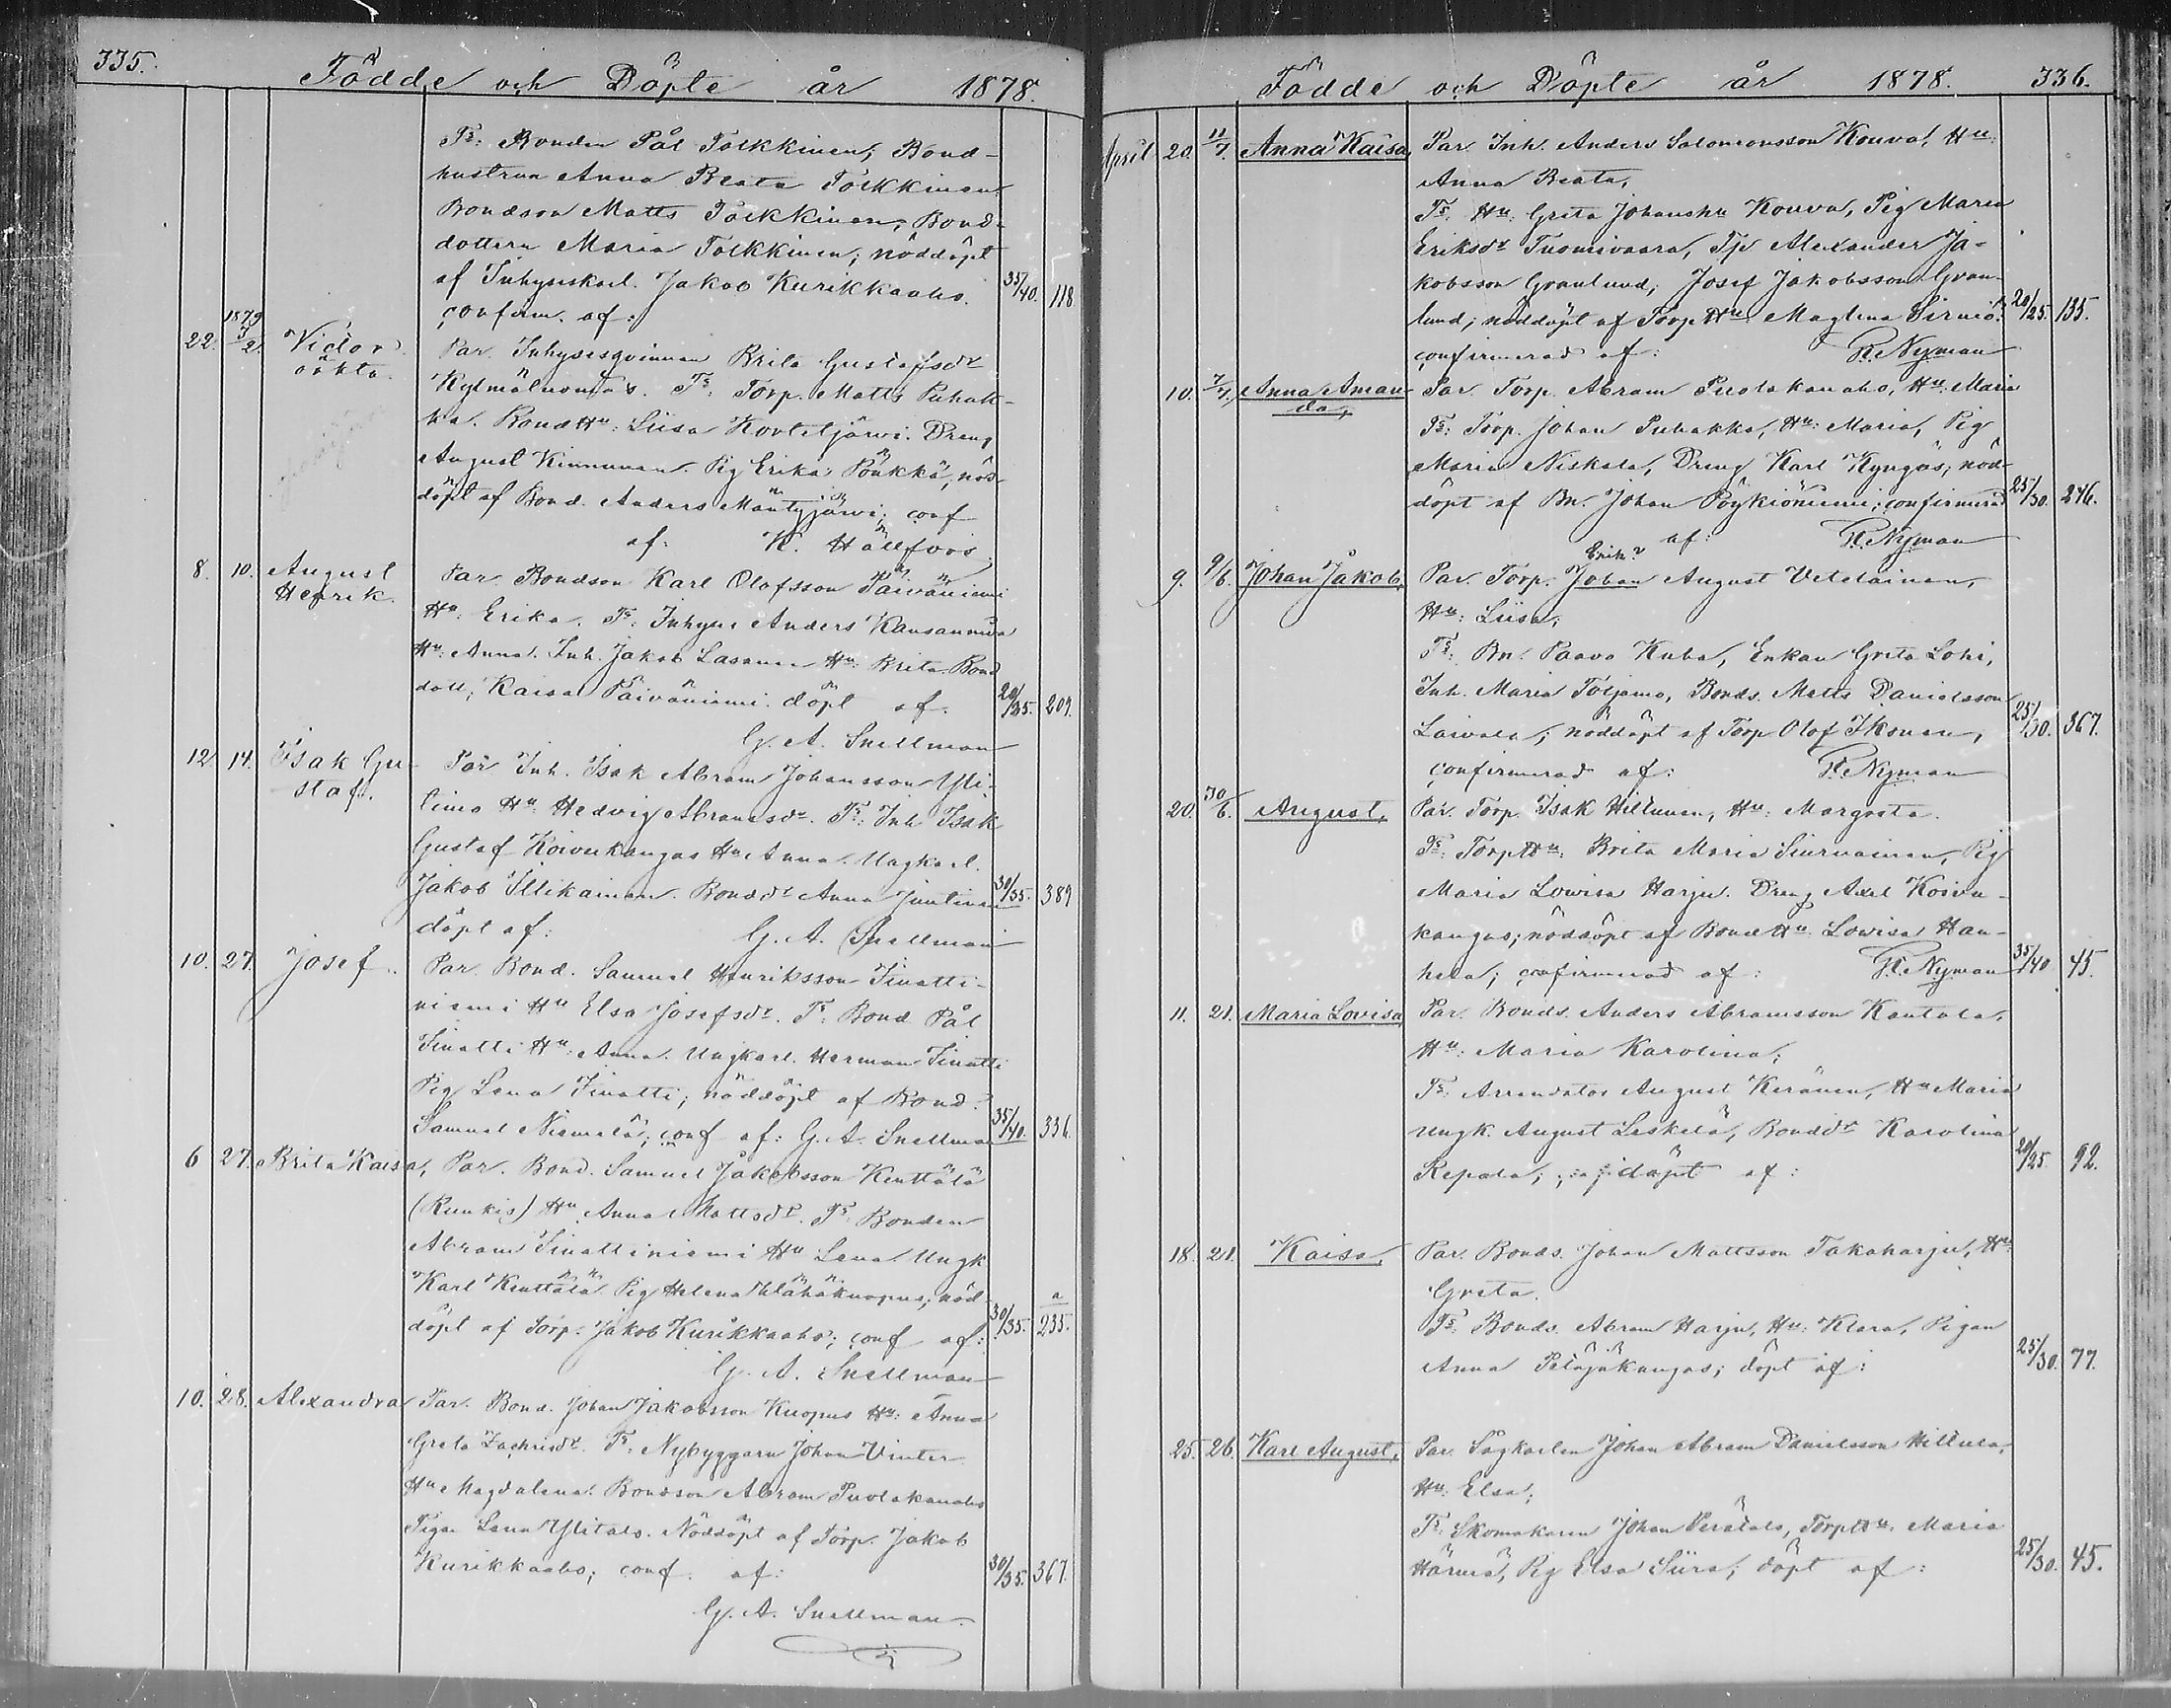 335.
Födde och Döpte år 1878.
Ts: Bonden Pål Tolkkinen, Bond-
hustrun Anna Beata Tolkkinen
Bondson Matts Tolkkinen, Bond-
dottern Maria Tolkkinen; nöddöpt
af Inhyseskarl. Jakob Kurikkaaho. 35/40. 118.
confirm. af:
22. 1879 2. Victor Par. Inhysesqvinnan Brita Gustafsdr
oäkta. Kylmäluoma's. Ts: Torp. Matts Puhak-
ka. BondHu: Liisa Kovteljärvi. Dreng
August Kinnunen. Pig Erika Poukkä, nöd-
döpt af Bond. Anders Mäntyjärvi; conf
af: K. Hällfors.
8. 10. August Par. Bondson Karl Olofsson Päiväniemi
Henrik. Hu: Erika. Ts: Inhyse Anders Kansanniva
Hu: Anna. Inh. Jakob Lasanen Hu: Brita. Bond
dott; Kaisa Päiväniemi. döpt af. 20/35. 209.
G. A. Snellman
12. 14. Isak Gu- Par Inh. Isak Abram Johansson Yli-
staf. limo Hu: Hedvig Abramsdr. Ts: Inh Isak
Gustaf Koivukangas Hu Anna. Ungkarl.
Jakob Illikainen. Bonddr Anna Juntinen 30/35. 389
döpt af: G. A. Snellman
10. 27. Josef. Par. Bond. Samuel Henriksson Sinatti-
niemi Hu Elsa Josefsdr. Ts: Bond Pål
Sinatti Hu: Anna. Ungkarl. Herman Sinatti
Pig Lena Sinatti; nöddöpt af Bond.
Samuel Niemelä; conf af: G. A. Snellman 35/40. 336.
6 27. Brita Kaisa, Par. Bond. Samuel Jakobsson Kenttälä
(Runkis) Hu Anna Mattsdr. Ts: Bonden
Abram Sinattiniemi Hu Lena. Ungk
Karl Kenttälä Pig Helena Vähäkuopus; nöd-
döpt af Torp. Jakob Kurikkaaho; conf af: 30/35. a 235.
G. A. Snellman
10. 28. Alexandra Par. Bond. Johan Jakobsson Kuopus Hu: Anna
Greta Zachrisdr. Ts: Nybyggarn Johan Vinter
Hu Magdalena. Bondson Abram Puolakanaho
Pigan Lena Ylitalo. Nöddöpt af Torp. Jakob
Kurikkaaho; conf. af: 30/35. 367.
G. A. Snellman
Födde och Döpte år 1878. 336.
April 20. 11/7. Anna Kaisa, Par. Inh. Anders Salomonsson Kouva, Hu:
Anna Beata,
Ts: Hu: Greta Johanska Kouva, Pig Maria
Eriksdr Tuomivaara, Tjp Alexander Ja-
kobsson Granlund, Josef Jakobsson Gran-
lund; nöddöpt af TorpHu Maglena Sirniö: 20/25. 135.
confirmerad af: R. Nyman
10. 7/7. Anna Aman- Par. Torp. Abram Puolakanaho, Hu: Maria
da, Ts: Torp. Johan Puhakka, Hu: Maria, Pig
Maria Niskala, Dreng Karl Kyngäs; nöd-
döpt af Bn. Johan Pöykiöniemi; confirmerad 25/30. 246.
af: R. Nyman
Erik?
9. 9/6. Johan Jakob, Par. Torp. Johan August Vetelainen,
Hu: Liisa,
Ts: Bn. Paavo Kuha, Enkan Greta Lohi,
Inh. Maria Toljamo, Bonds. Matts Danielsson
Laivala; nöddöpt af Torp Olof Ikonen, 25/30. 367.
confirmerad af: R. Nyman
20. 30/6. August, Par. Torp. Isak Hiltunen, Hu: Margreta.
Ts: TorpHu: Brita Maria Siurnainen, Pig
Maria Lowisa Harju. Dreng Axel Koivu-
kangas; nöddöpt af BondHu Lowisa Han-
hela; confirmerad af: R. Nyman 35/40 45.
11. 21. Maria Lovisa, Par. Bonds. Anders Abramsson Kantola,
Hu: Maria Karolina;
Ts: Arrendator August Keränen, Hu Maria
Ungk. August Leskelä, Bonddr Karolina
Repola; döpt af: 20/25. 92.
18. 21. Kaisa, Par. Bonds. Johan Mattsson Takaharju, Hu:
Greta.
Ts: Bonds. Abram Harju, Hu: Klara, Pigan
Anna Petäjäkangas; döpt af: 25/30. 77.
25. 26. Karl August, Par. Sågkarlen Johan Abram Danielsson Hillula,
Hu: Elsa;
Ts: Skomakaren Johan Perätalo, TorpHu. Maria
Härmä, Pig Elsa Siira; döpt af: 25/30. 45.